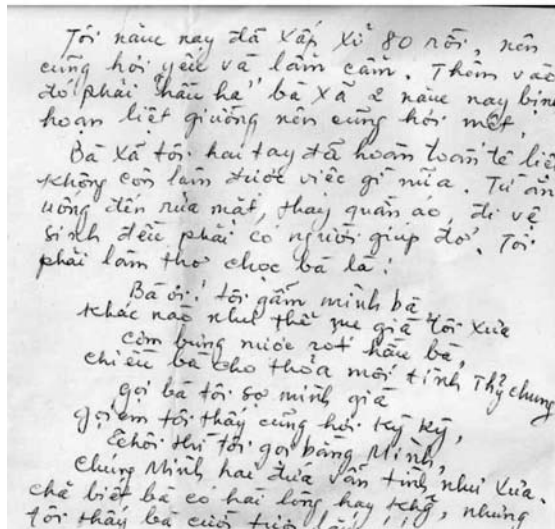 Tôi năm nay đã xấp xỉ 80 rồi, nên
cũng hơi yếu và lẩm cẩm. Thêm vào
đó phải "hầu hạ" bà xã 2 năm nay bịnh
hoạn liệt giường nên cũng hơi mệt.
Bà xã tôi hai tay đã hoàn toàn tê liệ
không còn làm được việc gì nữa. Từ ăn
uống đến rửa mặt, thay quần áo, đi vệ
sinh đều phải có người giúp đở. Tôi
phải làm thơ chọc bà là:
Bà ơi! tôi gẫm mình bà
khác nào như thể mẹ già tôi xưa
Cơm bưng nước rót hầu bà,
chiều bà cho thỏa mối tình Thỷ chung
gọi bà tôi sợ mình già
gọi em tôi thấy cũng hơi kỳ kỳ,
thôi thì tôi gọi bằng Mình,
chúng Mình hai đứa vẫn tình như xưa.
chả biết bà có hài lòng hay không, nhưng
tôi thấy bà cười